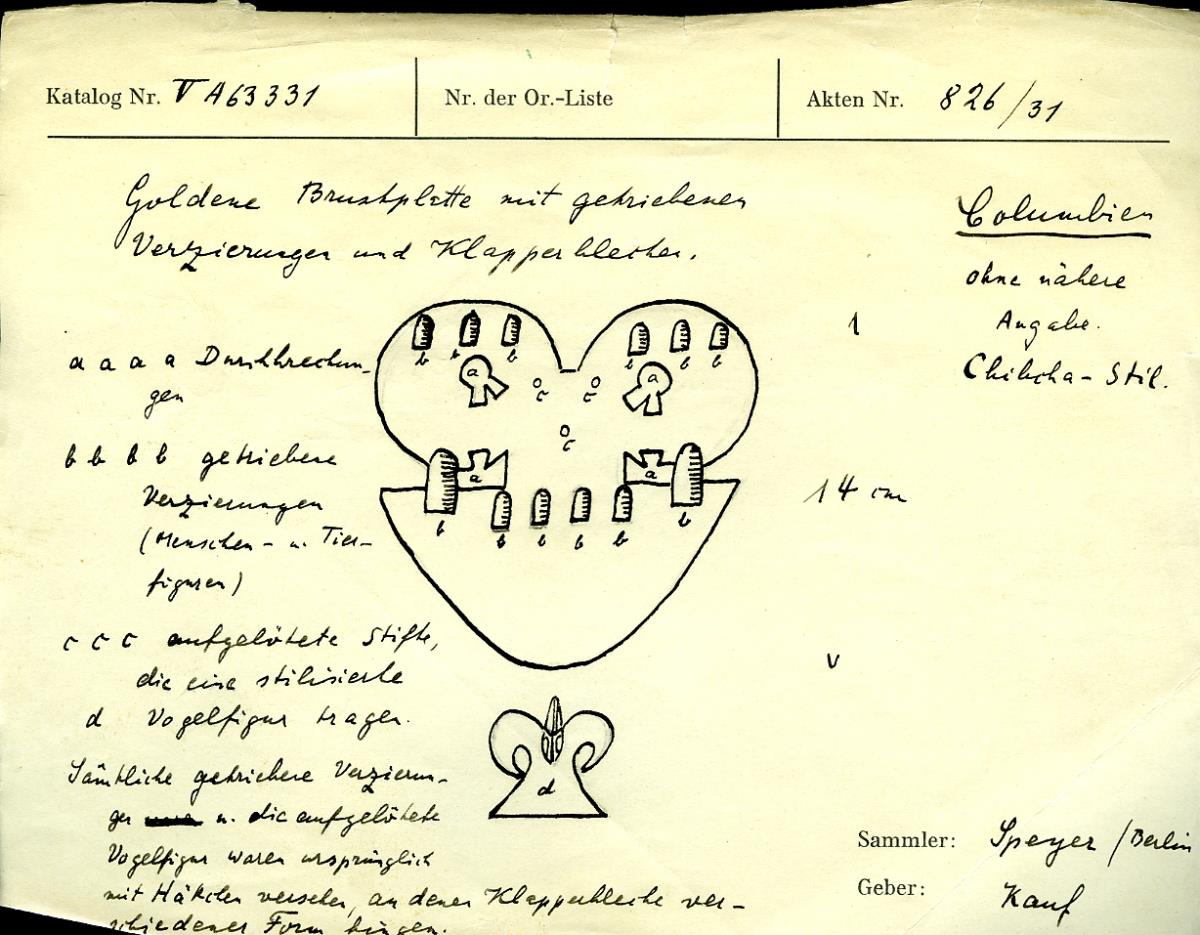 Katalog Nr. V A 63331
Nr. der Or.-Liste
Akten Nr. 826/31
Goldene Brustplatte mit getriebenen
Verzierungen und Klapperblechen.
Columbien
ohne nähere
Angabe.
Chibcha-Stil.
1
14 cm
v
a a a a Durchbrechun-
gen
b b b b getriebene
Verzierungen
(Menschen- u. Tier-
figuren)
c c c aufgelötete Stifte,
die eine stilisierte
d Vogelfigur tragen.
Sämtliche getriebene Verzierun-
gen u. die aufgelötete
Vogelfigur waren ursprünglich
mit Häkchen versehen, an denen Klapperbleche ver-
schiedener Form hingen.
b b b b b b
a a
c c
c
a a
b b b b b b
d
Sammler: Speyer / Berlin
Geber: Kauf